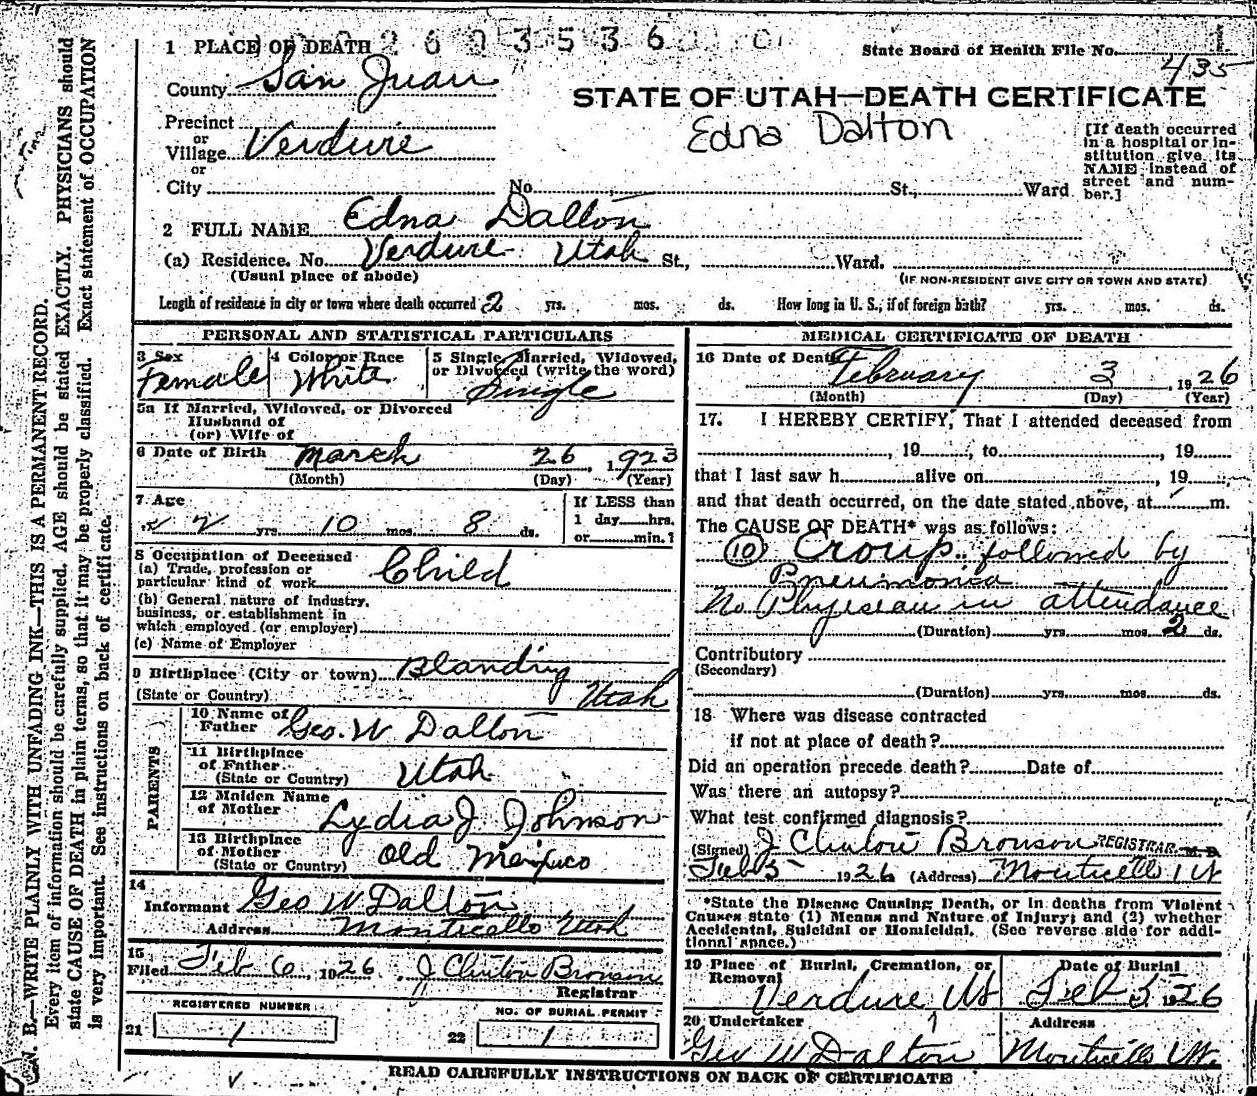 1 PLACE OF DEATH 2603536
State Board of Health File No. 435
County San Juan
STATE OF UTAH—DEATH CERTIFICATE
Edna Dalton
Precinct
or
Village Verdure
or
City No. St., Ward
[If death occurred
in a hospital or in-
stitution give its
NAME instead of
street and num-
ber.]
2 FULL NAME Edna Dalton
(a) Residence. No. Verdure Utah St., Ward.
(Usual place of abode) (IF NON-RESIDENT GIVE CITY OR TOWN AND STATE)
Length of residence in city or town where death occurred 2 yrs. mos. ds. How long in U. S., if of foreign birth? yrs. mos. ds.
PERSONAL AND STATISTICAL PARTICULARS
3 Sex
Female
4 Color or Race
White
5 Single, Married, Widowed,
or Divorced (write the word)
Single
5a If Married, Widowed, or Divorced
Husband of
(or) Wife of
6 Date of Birth March 26, 1923
(Month) (Day) (Year)
7 Age
2 yrs. 10 mos. 8 ds.
If LESS than
1 day hrs.
or min.?
8 Occupation of Deceased
(a) Trade, profession or
particular kind of work Child
(b) General nature of industry,
business, or establishment in
which employed (or employer)
(c) Name of Employer
9 Birthplace (City or town) Blanding
(State or Country) Utah
PARENTS
10 Name of
Father Geo. W Dalton
11 Birthplace
of Father
(State or Country) Utah
12 Maiden Name
of Mother Lydia J Johnson
13 Birthplace
of Mother
(State or Country) Old Mexico
14
Informant Geo W Dalton
Address Monticello Utah
15
Filed Feb 6, 1926 J Clinton Bronson
Registrar
REGISTERED NUMBER
21 1
NO. OF BURIAL PERMIT
22 1
MEDICAL CERTIFICATE OF DEATH
16 Date of Death February 3, 1926
(Month) (Day) (Year)
17. I HEREBY CERTIFY, That I attended deceased from
, 19 , to , 19
that I last saw h alive on , 19
and that death occurred, on the date stated above, at m.
The CAUSE OF DEATH* was as follows:
(10) Croup followed by
Pneumonia
No Physician in attendance
(Duration) yrs. mos. 2 ds.
Contributory
(Secondary)
(Duration) yrs. mos. ds.
18 Where was disease contracted
if not at place of death?
Did an operation precede death? Date of
Was there an autopsy?
What test confirmed diagnosis?
(Signed) J Clinton Bronson REGISTRAR M. D.
Feb 5 1926 (Address) Monticello Ut
*State the Disease Causing Death, or in deaths from Violent
Causes state (1) Means and Nature of Injury; and (2) whether
Accidental, Suicidal or Homicidal. (See reverse side for addi-
tional space.)
19 Place of Burial, Cremation, or
Removal
Verdure Ut
Date of Burial
Feb 5 1926
20 Undertaker
Geo W Dalton
Address
Monticello Ut.
READ CAREFULLY INSTRUCTIONS ON BACK OF CERTIFICATE
N. B.—WRITE PLAINLY WITH UNFADING INK—THIS IS A PERMANENT RECORD.
Every item of information should be carefully supplied. AGE should be stated EXACTLY. PHYSICIANS should
state CAUSE OF DEATH in plain terms, so that it may be properly classified. Exact statement of OCCUPATION
is very important. See instructions on back of certificate.